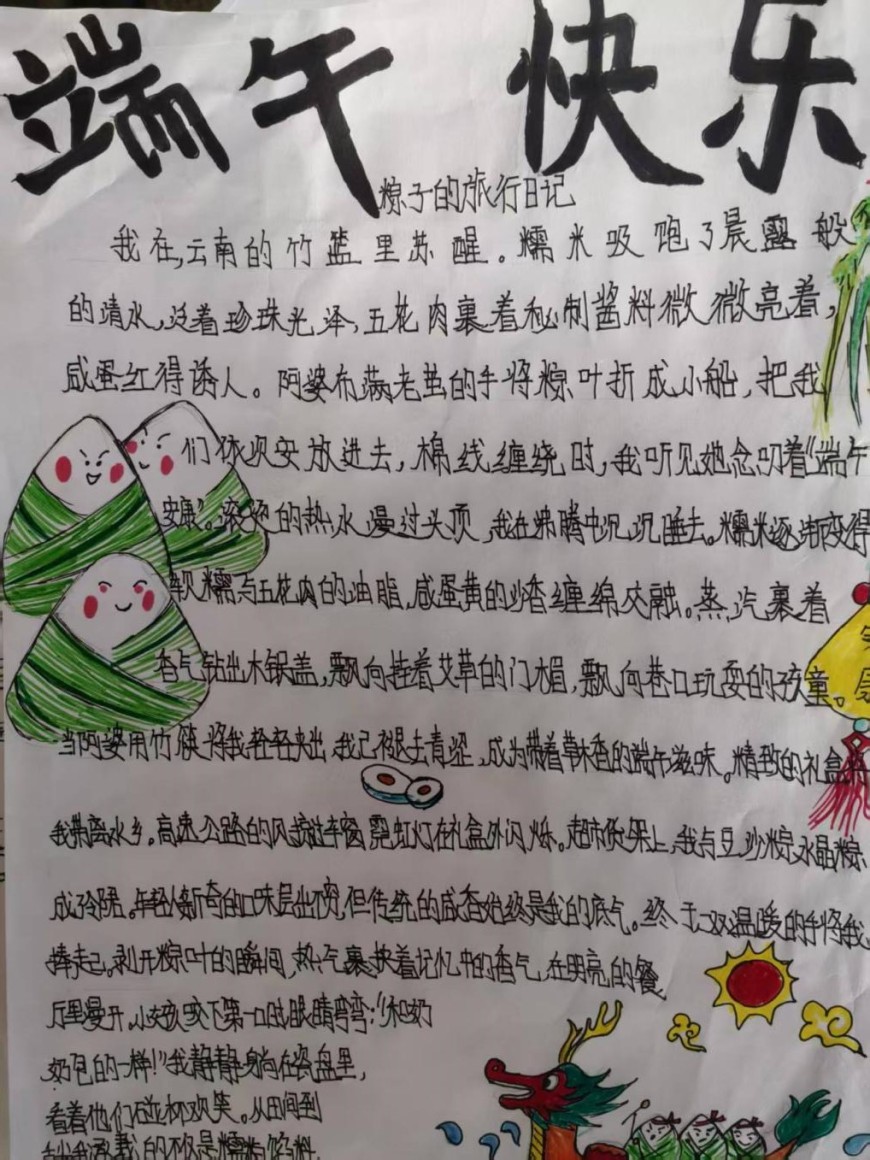 端午 快乐
粽子的旅行日记
我在,云南的竹篮里苏醒。糯米吸饱了晨露般
的清水,泛着珍珠光泽,五花肉裹着秘制酱料微微亮着,
咸蛋红得诱人。阿婆布满老茧的手将粽叶折成小船,把我
们依次安放进去,棉线缠绕时,我听见她念叨着“端午
安康”。滚烫的热水漫过头顶,我在沸腾中沉沉睡去。糯米逐渐变得
软糯与五花肉的油脂,咸蛋黄的沙香缠绵交融。蒸汽裹着
香气钻出木锅盖,飘向挂着艾草的门楣,飘向巷口玩耍的孩童。
当阿婆用竹筷将我轻轻夹出,我已褪去青涩,成为带着草木香的端午滋味。精致的礼盒将
我带离水乡。高速公路的风掠过车窗霓虹灯在礼盒外闪烁。超市货架上,我与豆沙粽水晶粽
成邻居。年轻人新奇的口味层出不穷,但传统的咸香始终是我的底气。终于双温暖的手将我
捧起。剥开粽叶的瞬间,热气裹挟着记忆中的香气,在明亮的餐
厅里漫开。小女孩咬下第一口时眼睛弯弯:“和奶
奶包的一样!”我静静躺在瓷盘里,
看着他们碰杯欢笑。从田间到
我承载的不仅是糯米与馅料